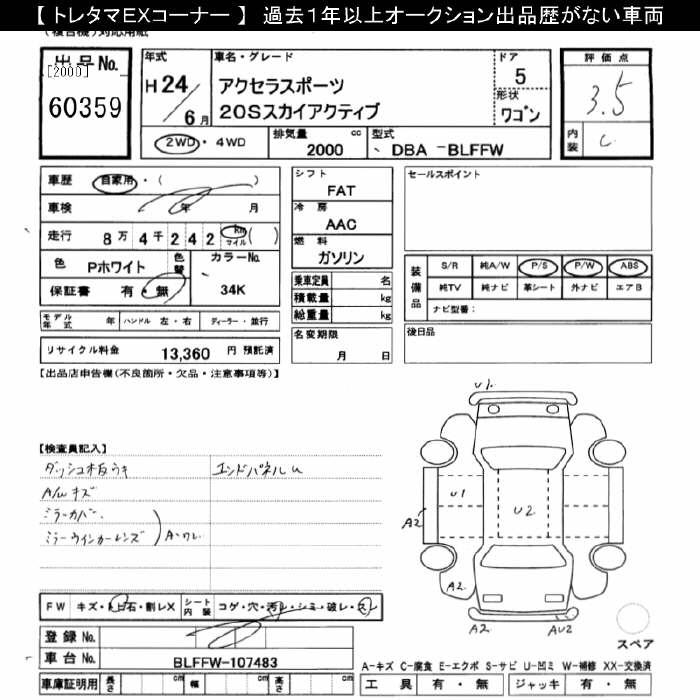 【 トレタマEXコーナー 】 過去1年以上オークション出品歴がない車両
(複合機)対応用紙
出品No.
[2000]
60359
年式
H 24/6月
車名・グレード
アクセラスポーツ
20Sスカイアクティブ
ドア
5
形状
ワゴン
2WD・4WD
排気量 cc
2000
型式
DBA -BLFFW
評価点
3.5
内装
C
車歴 自家用・( )
車検 年 月
走行 8万 4千 2 4 2 km マイル ( )
色 Pホワイト
色替
カラーNo.
34K
保証書 有・無
モデル年式 年 ハンドル 左・右 ディーラー・並行
リサイクル料金 13,360 円 預託済
シフト
FAT
冷房
AAC
燃料
ガソリン
乗車定員 名
積載量 kg
総重量 kg
名変期限
月 日
セールスポイント
装備品
S/R 純A/W P/S P/W ABS
純TV 純ナビ 革シート 外ナビ エアB
ナビ型番:
後日品
【出品店申告欄(不良箇所・欠品・注意事項等)】
【検査員記入】
ダッシュ板ウキ
エンドパネルu
A/wキズ
ミラーカバー
ミラーウインカーレンズ
A・ワレ
U1
U1
U2
A2
A2
A2
A2
AU2
スペア
FW キズ・トビ石・割レX
シート内装 コゲ・穴・汚レ・シミ・破レ・スレ
登録No.
車台No. BLFFW-107483
車庫証明用 長さ cm 幅 cm 高さ cm
A-キズ C-腐食 E-エクボ S-サビ U-凹ミ W-補修 XX-交換済
工具 有・無 ジャッキ 有・無